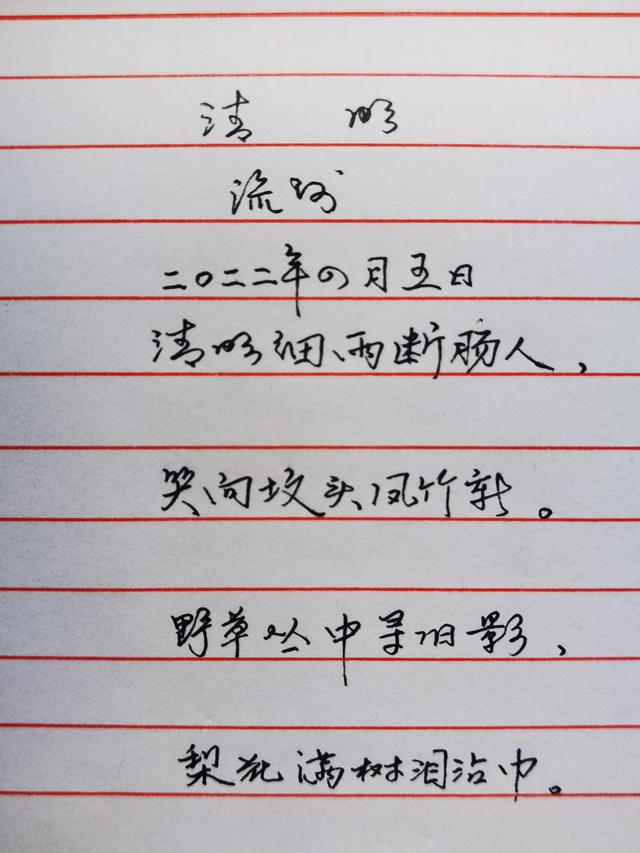 清 明
流
二〇二二年四月五日
清明细雨断肠人，
哭向坟头凤竹新。
野草丛中寻旧影、
梨花满树泪沾巾。